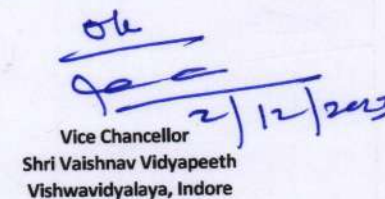 Ok
2/12/2023
Vice Chancellor
Shri Vaishnav Vidyapeeth
Vishwavidyalaya, Indore